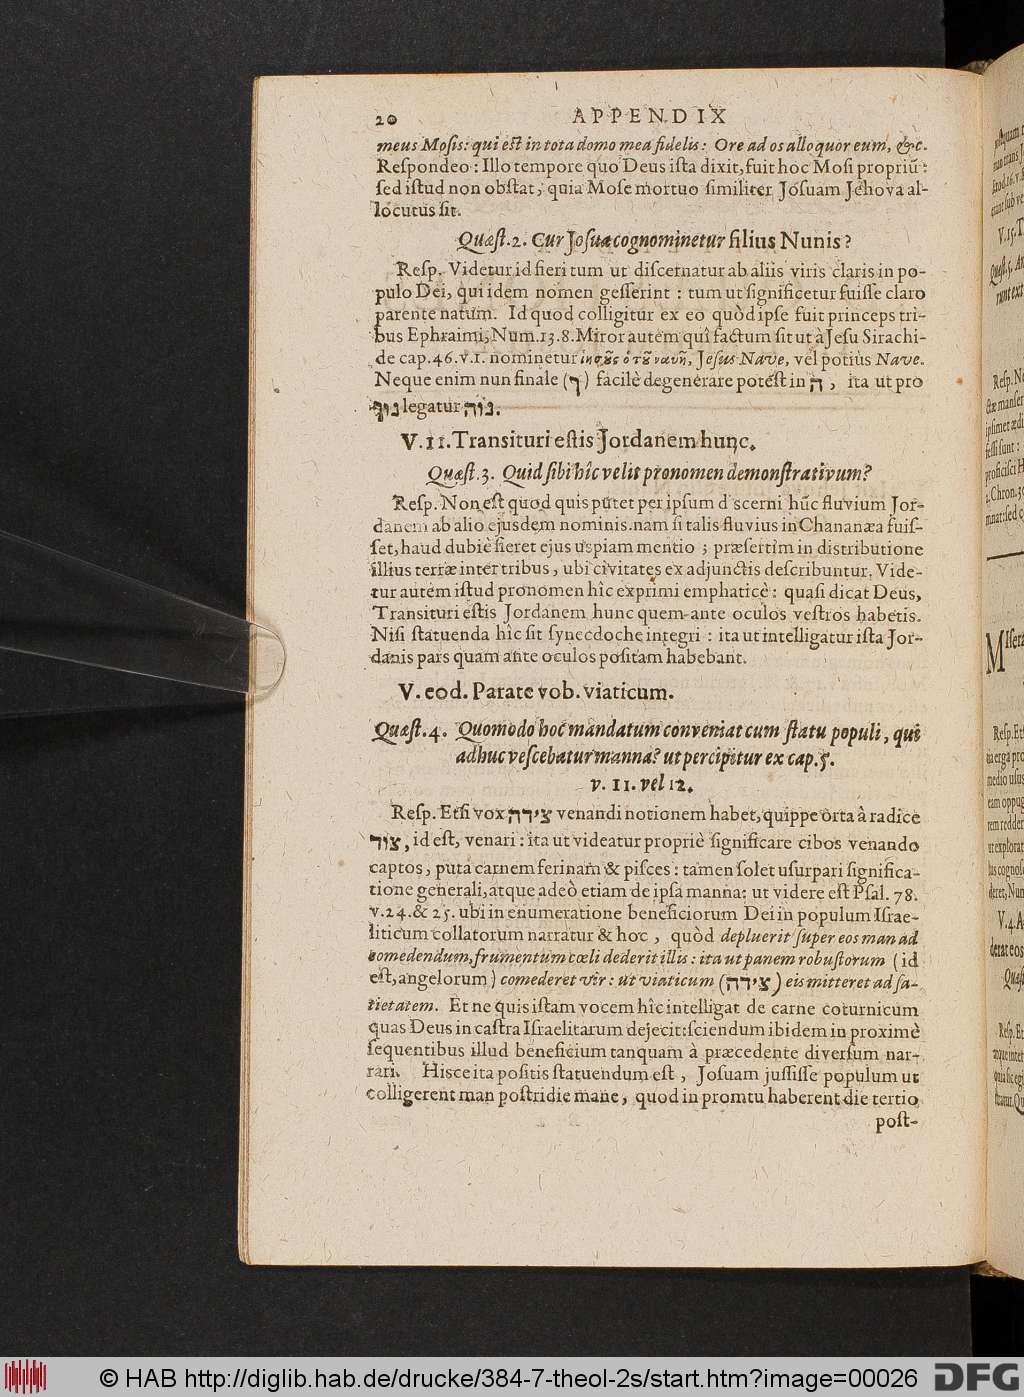 20 APPENDIX
meus Mosis: qui est in tota domo mea fidelis: Ore ad os alloquor eum, &c.
Respondeo: Illo tempore quo Deus ista dixit, fuit hoc Mosi propriũ:
sed istud non obstat, quia Mose mortuo similiter Josuam Jehova al-
locutus sit.
Quæst. 2. Cur Josua cognominetur filius Nunis?
Resp. Videtur id fieri tum ut discernatur ab aliis viris claris in po-
pulo Dei, qui idem nomen gesserint: tum ut significetur fuisse claro
parente natum. Id quod colligitur ex eo quòd ipse fuit princeps tri-
bus Ephraimi, Num. 13. 8. Miror autem quî factum sit ut à Jesu Sirachi-
de cap. 46. v. 1. nominetur ἰησοῦς ὁ τοῦ ναυῆ, Jesus Nave, vel potiùs Nave.
Neque enim nun finale (ן) facilè degenerare potest in ה, ita ut pro
נון legatur נוה.
V. 11. Transituri estis Jordanem hunc.
Quæst. 3. Quid sibi hîc velit pronomen demonstrativum?
Resp. Non est quod quis putet per ipsum d scerni hũc fluvium Jor-
danem ab alio ejusdem nominis. nam si talis fluvius in Chananæa fuis-
set, haud dubiè fieret ejus uspiam mentio; præsertim in distributione
illius terræ inter tribus, ubi civitates ex adjunctis describuntur. Vide-
tur autem istud pronomen hîc exprimi emphaticè: quasi dicat Deus,
Transituri estis Jordanem hunc quem ante oculos vestros habetis.
Nisi statuenda hîc sit synecdoche integri: ita ut intelligatur ista Jor-
danis pars quam ante oculos positam habebant.
V. eod. Parate vob. viaticum.
Quæst. 4. Quomodo hoc mandatum conveniat cum statu populi, qui
adhuc vescebatur manna? ut percipitur ex cap. 5.
v. 11. vel 12.
Resp. Etsi vox צידה venandi notionem habet, quippe orta à radice
צוד, id est, venari: ita ut videatur propriè significare cibos venando
captos, puta carnem ferinam & pisces: tamen solet usurpari significa-
tione generali, atque adeò etiam de ipsa manna: ut videre est Psal. 78.
v. 24. & 25. ubi in enumeratione beneficiorum Dei in populum Israe-
liticum collatorum narratur & hoc, quòd depluerit super eos man ad
comedendum, frumentum cœli dederit illis: ita ut panem robustorum (id
est, angelorum) comederet vir: ut viaticum (צידה) eis mitteret ad sa-
tietatem. Et ne quis istam vocem hîc intelligat de carne coturnicum
quas Deus in castra Israelitarum dejecit: sciendum ibidem in proximè
sequentibus illud beneficium tanquam à præcedente diversum nar-
rari. Hisce ita positis statuendum est, Josuam jussisse populum ut
colligerent man postridie mane, quod in promtu haberent die tertio
post-
© HAB http://diglib.hab.de/drucke/384-7-theol-2s/start.htm?image=00026
DFG